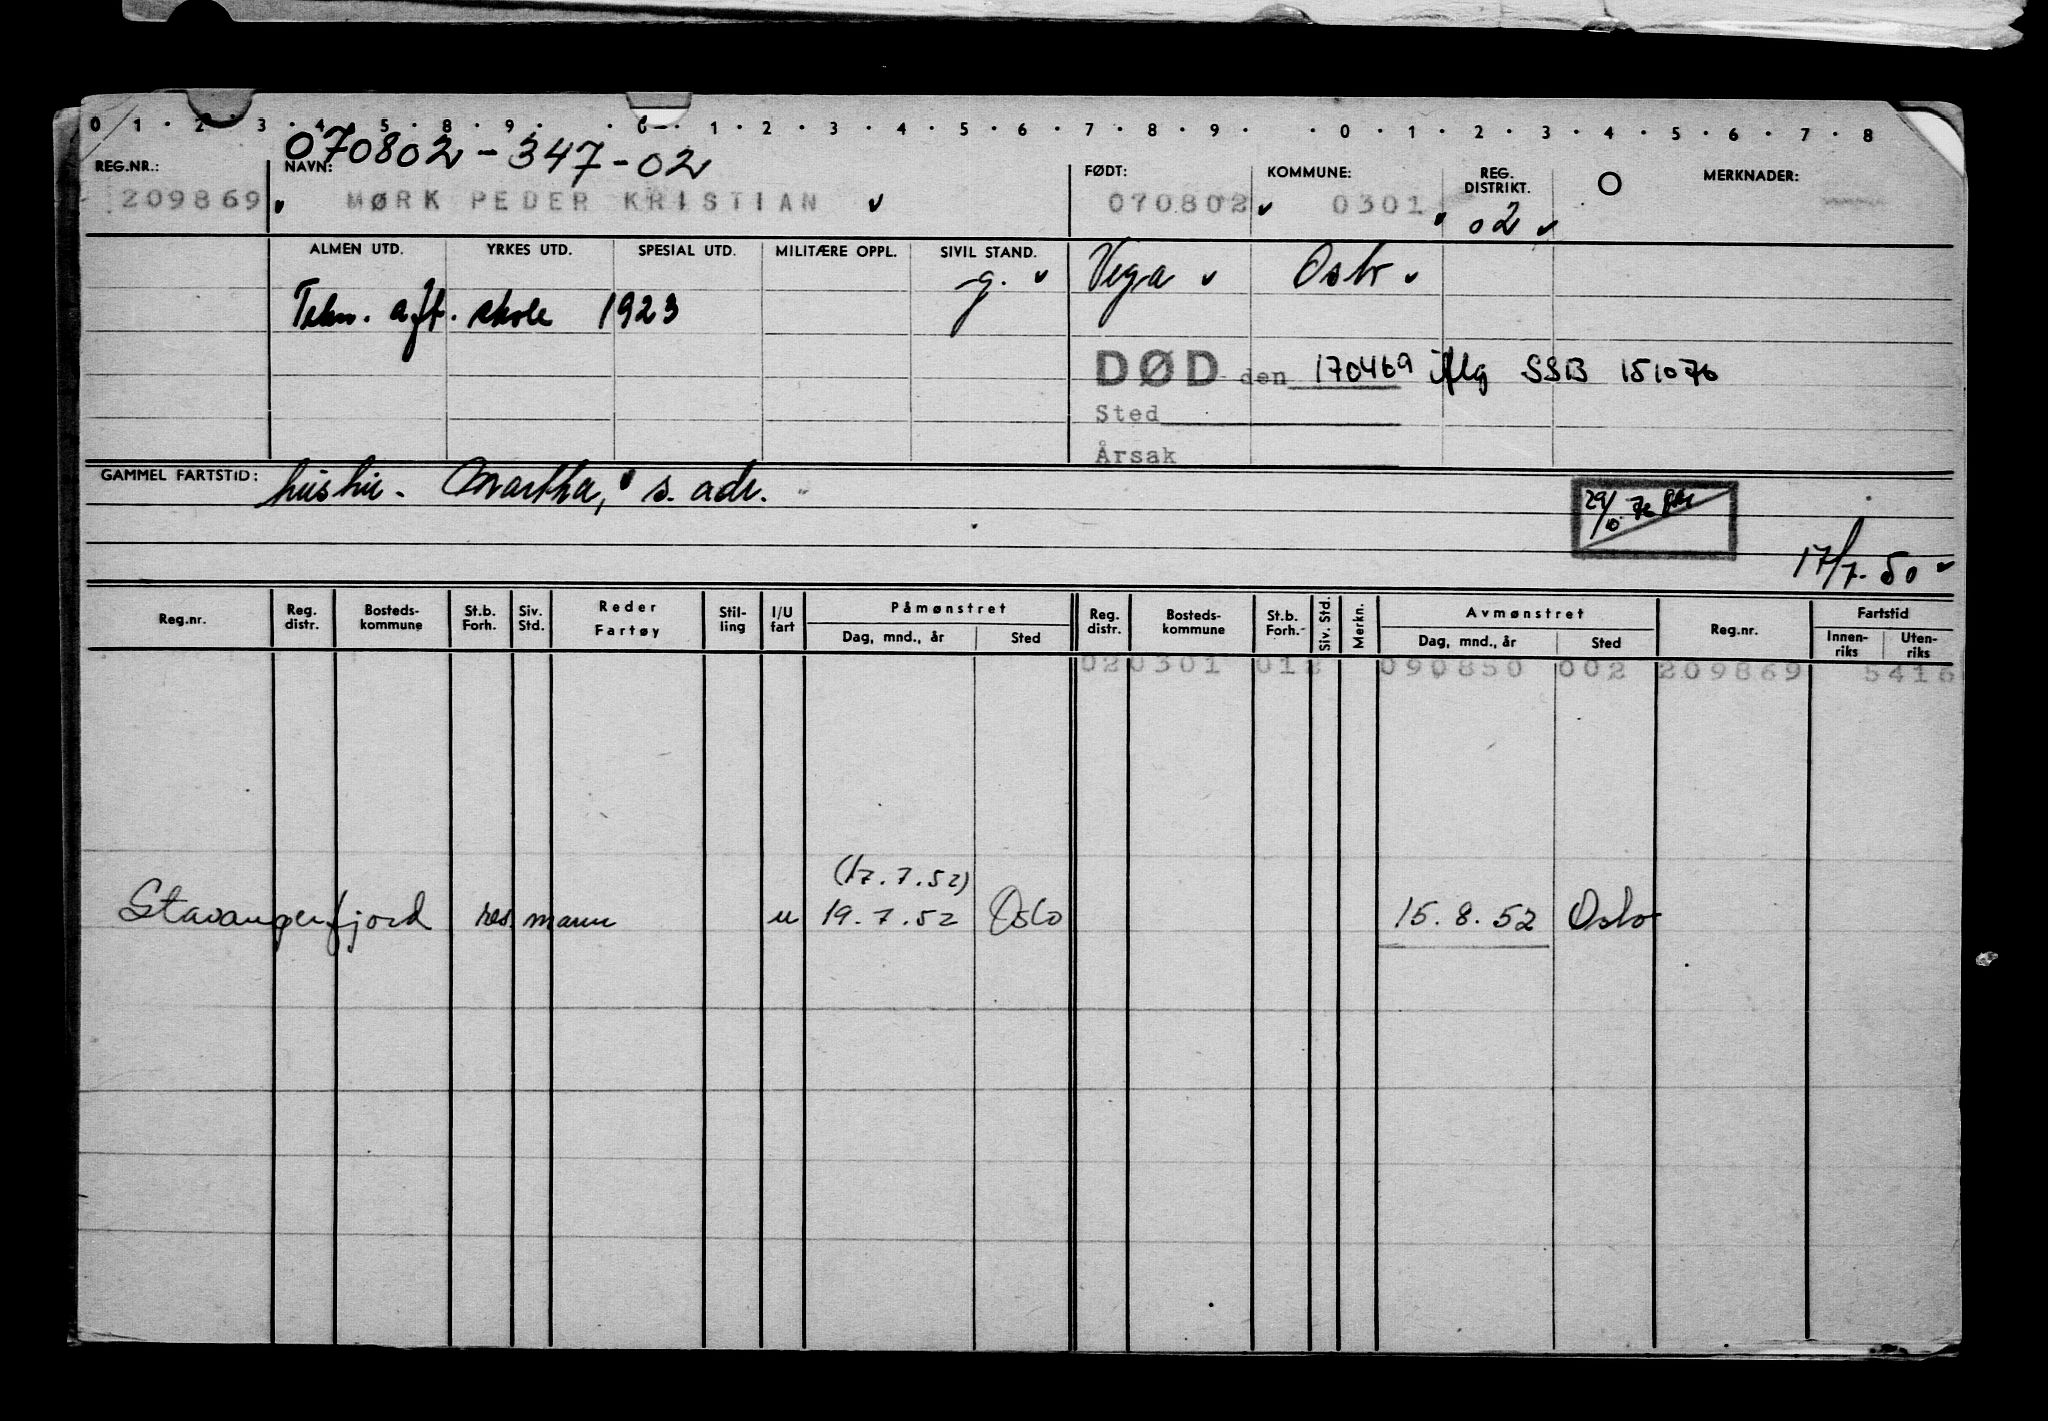 0 1 · 2 · 3 · 4 · 5 · 8 · 9 · · 0 · 1 · 2 · 3 · 4 · 5 · 6 · 7 · 8 · 9 · · 0 · 1 · 2 · 3 · 4 · 5 · 6 · 7 · 8
070802-347-02
REG.NR.: NAVN: FØDT: KOMMUNE: REG. DISTRIKT. O MERKNADER:
209869 MØRK PEDER KRISTIAN 070802 0301 02
ALMEN UTD. YRKES UTD. SPESIAL UTD. MILITÆRE OPPL. SIVIL STAND.
g. Vega Oslo
Tekn. aft. skole 1923
DØD den 170469 iflg SSB 151070
Sted
Årsak
GAMMEL FARTSTID: hustru. Martha, s. adr.
29/10 70
17/7. 50
Reg.nr. Reg. distr. Bosteds-kommune St.b. Forh. Siv. Std. Reder Fartøy Stil-ling I/U fart Påmønstret Dag, mnd., år Sted Reg. distr. Bosteds-kommune St.b. Forh. Siv. Std. Merkn. Avmønstret Dag, mnd., år Sted Reg.nr. Fartstid Innen-riks Uten-riks
02 0301 012 090850 002 209869 5416
(17.7.52)
Stavangerfjord res. mann u 19.7.52 Oslo 15.8.52 Oslo